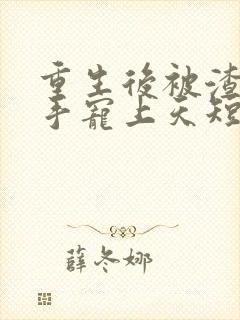 重生後被渣
手寵上天短
薛冬娜